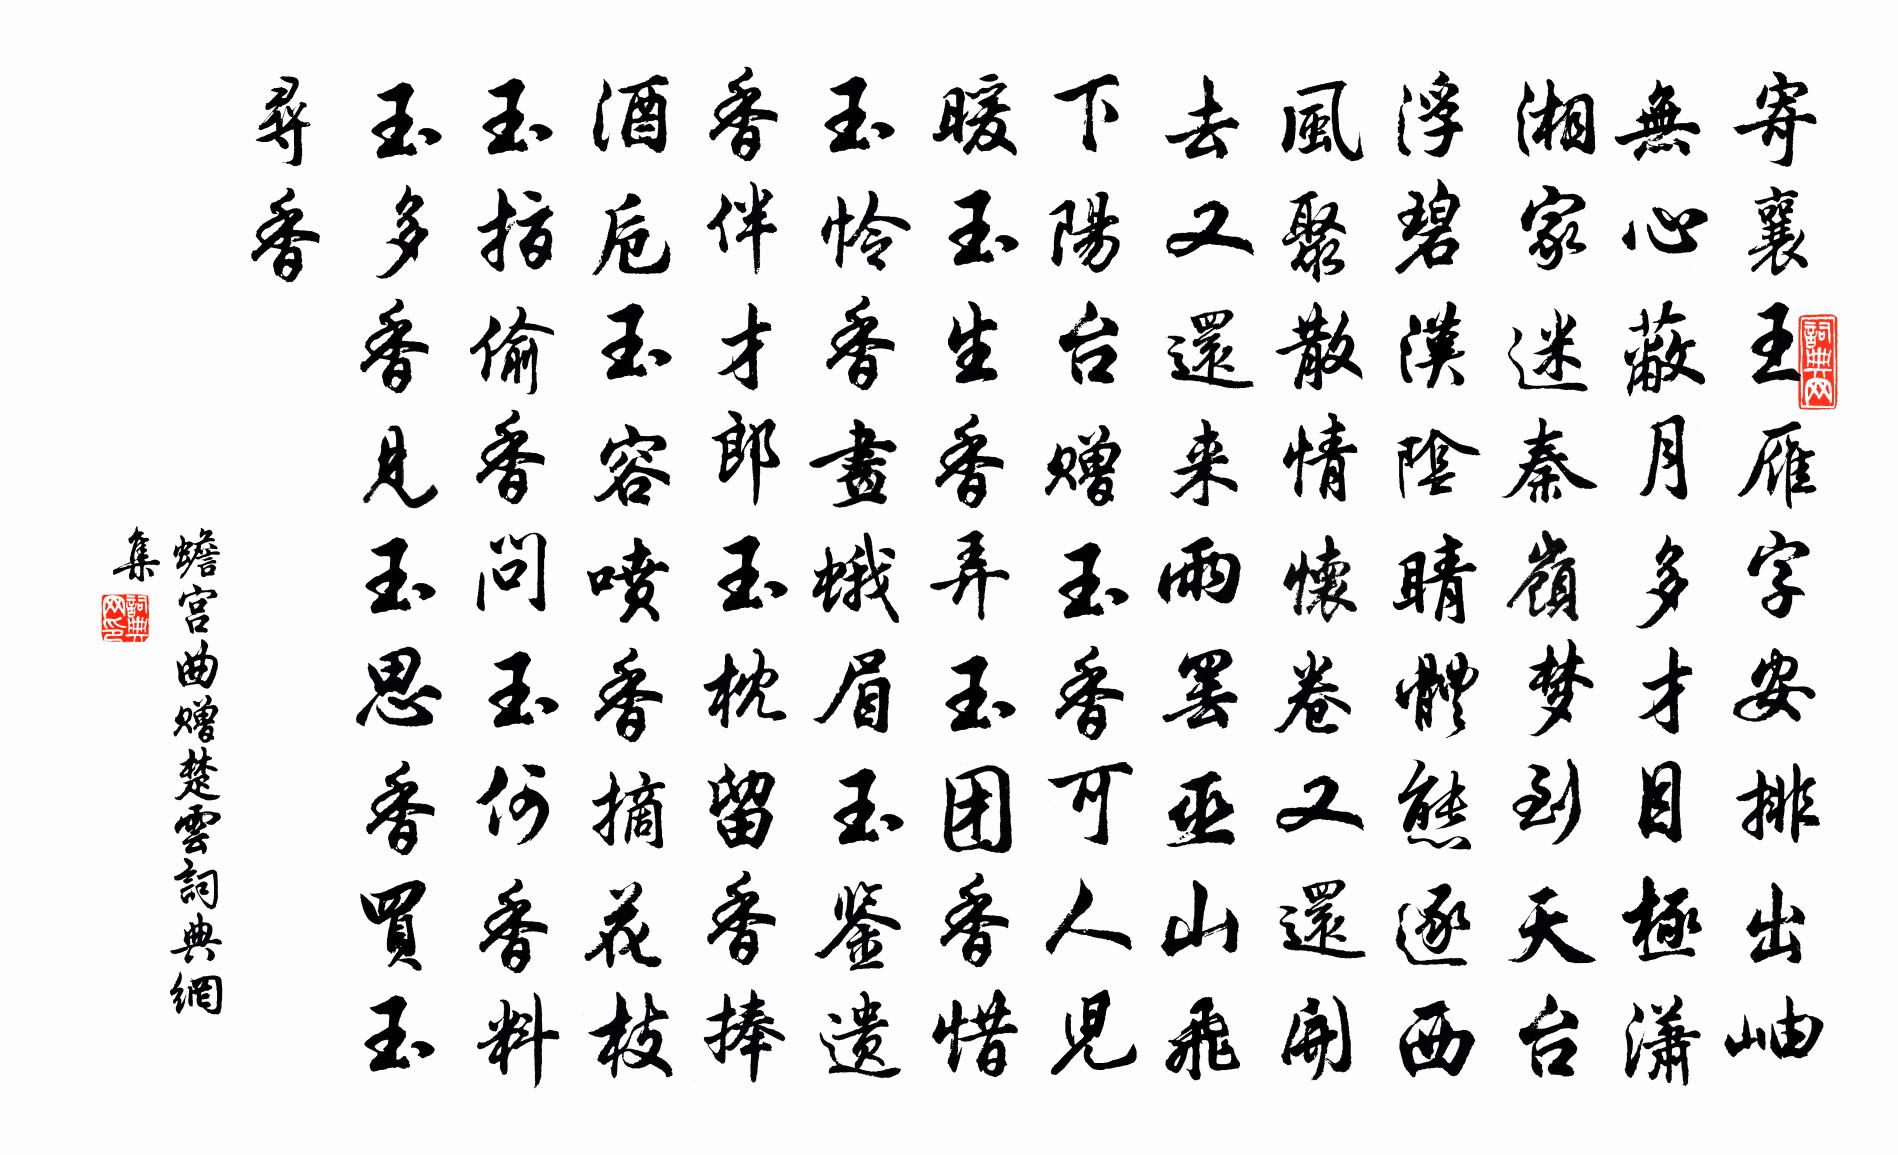 寄襄王雁字安排出岫
無心蔽月多才目極瀟
湘家迷秦嶺梦到天台
浮碧漢陰晴體態逐西
風聚散情懷卷又還開
去又還来雨罢巫山飛
下陽台赠玉香可人児
暖玉生香弄玉团香惜
玉怜香畫蛾眉玉鉴遗
香伴才郎玉枕留香捧
酒卮玉容喷香摘花枝
玉指偷香問玉何香料
玉多香見玉思香買玉
尋香
蟾宫曲赠楚雲詞典網
集
詞典网
詞典网印